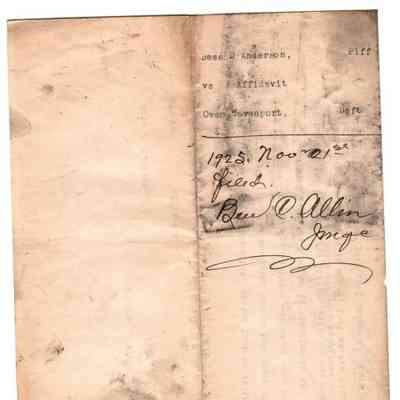 Anderson, Plff
vs Affidavit
Owen Davenport, Deft
1925, Nov 21st
filed.
Ben C. Allin
Judge